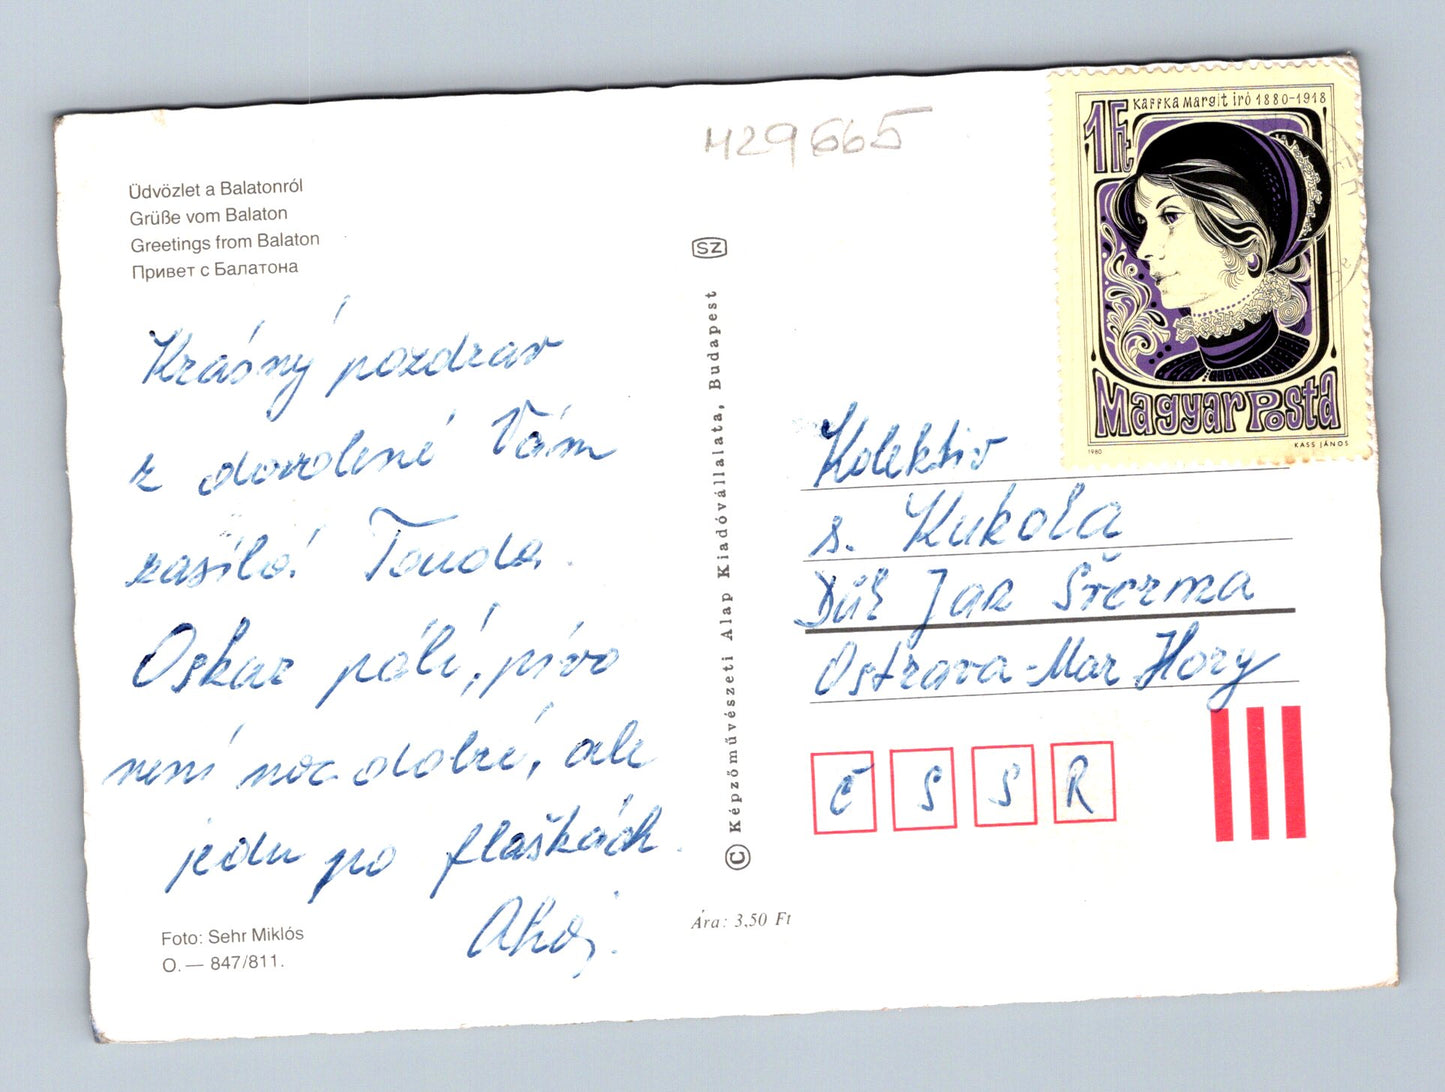 Üdvözlet a Balatonról
Grüße vom Balaton
Greetings from Balaton
Привет с Балатона
Krásný pozdrav
z dovolené Vám
zasílá Tonda.
Oskar pálí, pivo
není moc dobré, ale
jedu po flaškách.
Ahoj.
Foto: Sehr Miklós
O. — 847/811.
H29665
SZ
© Képzőművészeti Alap Kiadóvállalata, Budapest
Ára: 3,50 Ft
1 Ft
Kaffka Margit író 1880-1918
Magyar Posta
1980
KASS JÁNOS
Kolektiv
s. Kukola
Důl Jan Šverma
Ostrava-Mar Hory
Č S S R